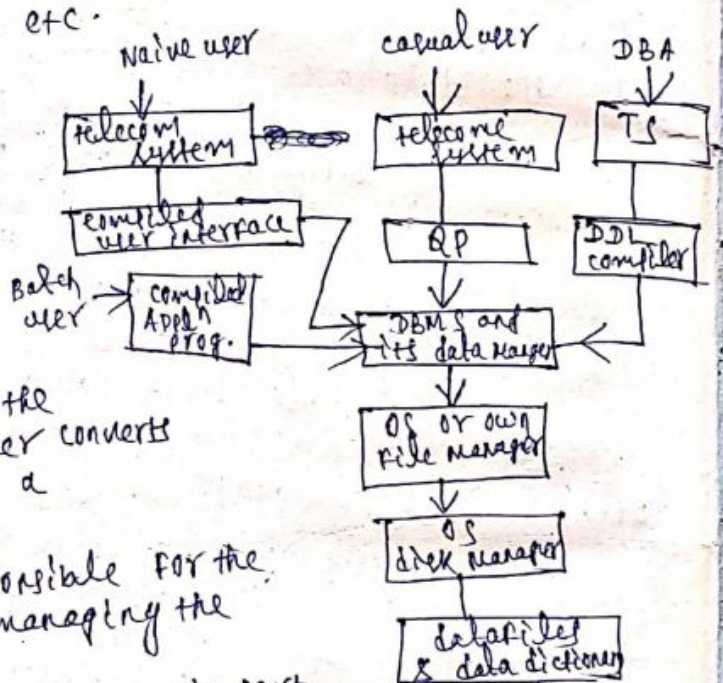 etc.
Naive user casual user DBA
telecom system
telecome system
TS
compiled user interface
QP
DDL compiler
Batch user
compiled Appln prog.
DBMS and its data Manger
the
er converts
a
OS or own File Manager
onsible for the
managing the
OS disk Manager
datafiles & data dictionary